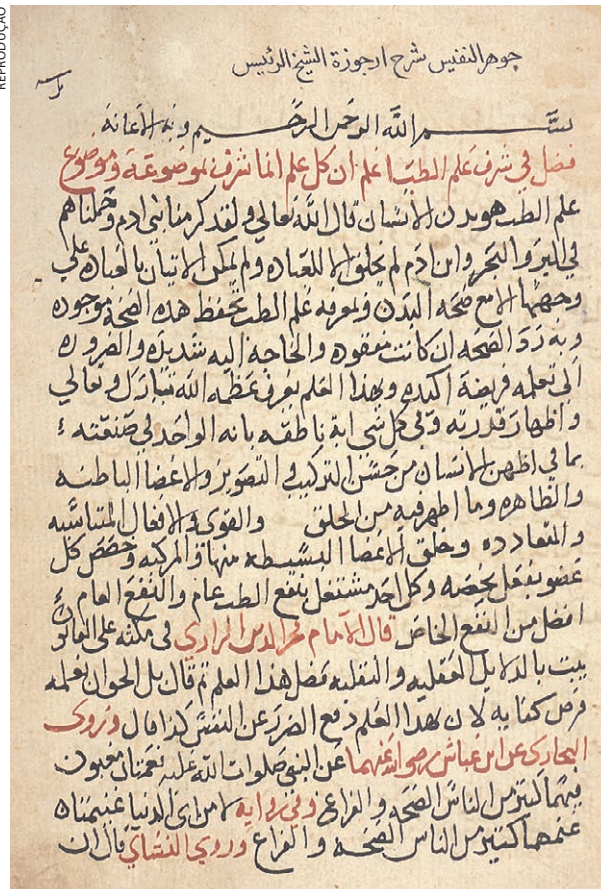 REPRODUÇÃO
جوهر النفيس شرح ارجوزة الشيخ الرئيس
بسم الله الرحمن الرحيم وبه الاعانه
فصل في شرف علم الطب اعلم ان كل علم انما شرف بموضوعه وموضوع
علم الطب هو بدن الانسان قال الله تعالى ولقد كرمنا بني ادم وحملناهم
في البر والبحر وابن ادم لم يخلق الا للعباده ولم يمكن الاتيان بالعباده علي
وجهها الا مع صحه البدن وبمعرفه علم الطب تحفظ هذه الصحه موجوده
وبه ترد الصحه ان كانت مفقوده والحاجه اليه شديده والضروره
الى تعلمه فريضة اكيده وبهذا العلم يعرف عظمه الله تبارك وتعالي
واظهار قدرته وفي كل شي اية ناطقه بانه الواحد في صنعته
بما في اظهر الانسان من حسن التركيب والتصوير والاعضا الباطنه
والظاهره وما اظهر فيه من الخلق والقوى والافعال المتشابه
وخلق الاعضا البسيطه منها والمركبه وخصص كل
عضو بفعل يخصه وكل احد مشتغل بنفع الطب عام والنفع العام
افضل من النفع الخاص قال الامام فخر الدين الرازي في على القانون
بالدلايل العقليه والنقليه فضل هذا العلم ثم قال بل الحق ان تعلمه
فرض كفايه لان بهذا العلم دفع الضرر عن النفس كذا قال وروى
البخاري عن ابن عباس رضي الله عنهما عن النبي صلوات الله عليه نعمتان مغبون
فيهما كثير من الناس الصحه والفراغ وفي روايه الدنيا غنيمتان
كثير من الناس الصحه والفراغ وروي النسائي قال ان